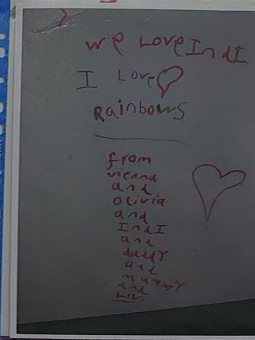 we Love IndI
I Love
RainbowS
from
vienna
and
olivia
and
IndI
and
daddY
and
mummY
and
Liv